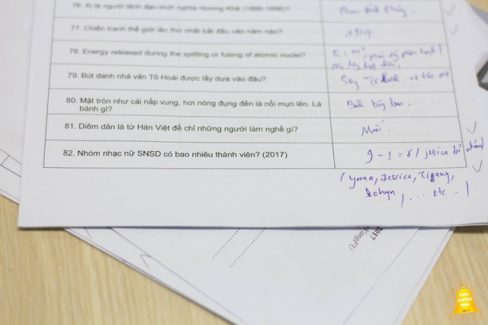 76. Ai là người lãnh đạo khởi nghĩa Hương Khê (1885-1896)?
Phan Đình Phùng
77. Chiến tranh thế giới lần thứ nhất bắt đầu vào năm nào?
1914
78. Energy released during the splitting or fusing of atomic nuclei?
E = mc²
79. Bút danh nhà văn Tô Hoài được lấy dựa vào đâu?
Sông Tô lịch và
80. Mặt tròn như cái nắp vung, hơi nóng đụng đến là nổi mụn lên. Là
bánh gì?
Bánh
81. Diêm dân là từ Hán Việt để chỉ những người làm nghề gì?
Muối
82. Nhóm nhạc nữ SNSD có bao nhiêu thành viên? (2017)
9 - 1 = 8 / jessica
(Yoona, Jessica, Tiffany,
Sohyn, ... etc.)
2017